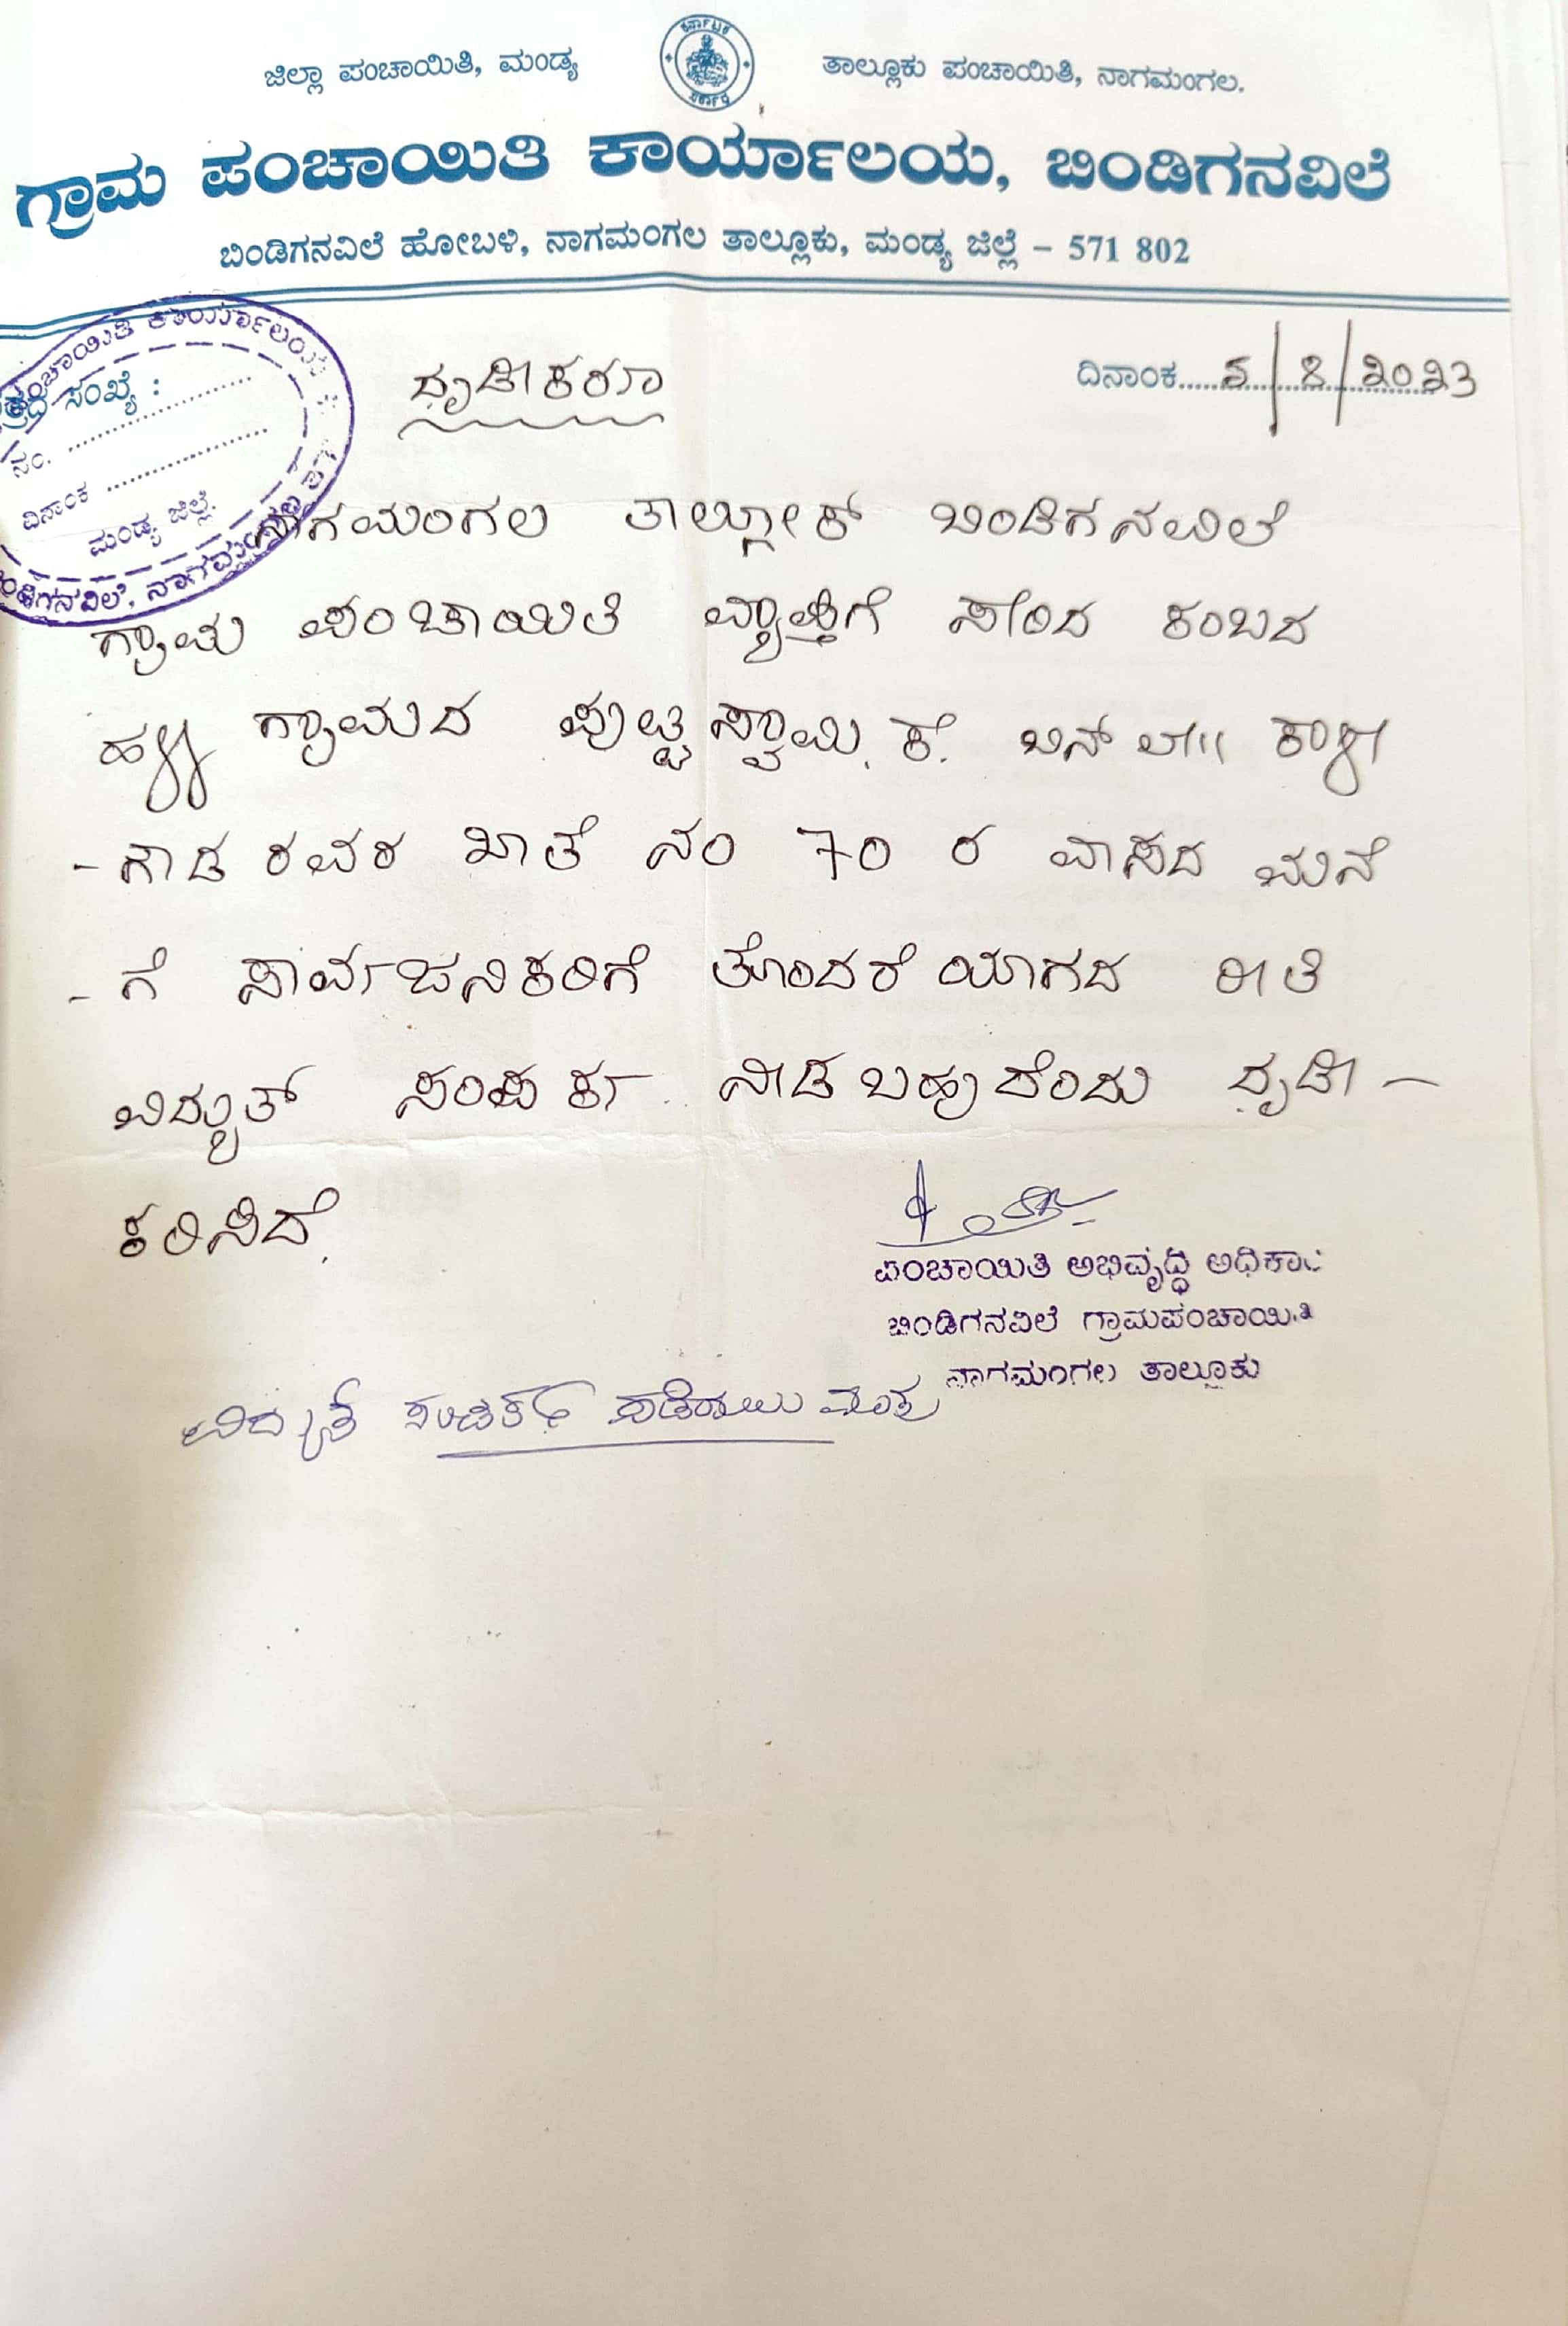 ಕರ್ನಾಟಕ ಸರ್ಕಾರ
ಜಿಲ್ಲಾ ಪಂಚಾಯಿತಿ, ಮಂಡ್ಯ
ತಾಲ್ಲೂಕು ಪಂಚಾಯಿತಿ, ನಾಗಮಂಗಲ.
ಗ್ರಾಮ ಪಂಚಾಯಿತಿ ಕಾರ್ಯಾಲಯ, ಬಿಂಡಿಗನವಿಲೆ
ಬಿಂಡಿಗನವಿಲೆ ಹೋಬಳಿ, ನಾಗಮಂಗಲ ತಾಲ್ಲೂಕು, ಮಂಡ್ಯ ಜಿಲ್ಲೆ – 571 802
ಪಂಚಾಯಿತಿ ಕಾರ್ಯಾಲಯ
ಸಂಖ್ಯೆ :
ನಂ. ....................
ದಿನಾಂಕ ....................
ಮಂಡ್ಯ ಜಿಲ್ಲೆ.
ದೃಡೀಕರಣ
ದಿನಾಂಕ..... 5/8/2023
ನಾಗಮಂಗಲ ತಾಲ್ಲೋಕ್ ಬಿಂಡಿಗನವಿಲೆ
ಗ್ರಾಮ ಪಂಚಾಯಿತಿ ವ್ಯಾಪ್ತಿಗೆ ಸೇರಿದ ಕಂಬದ
ಹಳ್ಳಿ ಗ್ರಾಮದ ಪುಟ್ಟಸ್ವಾಮಿ. ಕೆ. ಬಿನ್ ಲೇ|| ಕಾಳೇ
- ಗೌಡ ರವರ ಖಾತೆ ನಂ 70 ರ ವಾಸದ ಮನೆ
- ಗೆ ಸಾರ್ವಜನಿಕರಿಗೆ ತೊಂದರೆ ಯಾಗದ ರೀತಿ
ವಿದ್ಯುತ್ ಸಂಪರ್ಕ ನೀಡ ಬಹುದೆಂದು ದೃಡೀ -
ಕರಿಸಿದೆ.
ಪಂಚಾಯಿತಿ ಅಭಿವೃದ್ಧಿ ಅಧಿಕಾರಿ
ಬಿಂಡಿಗನವಿಲೆ ಗ್ರಾಮಪಂಚಾಯಿತಿ
ನಾಗಮಂಗಲ ತಾಲ್ಲೂಕು
ವಿದ್ಯುತ್ ಸಂಪರ್ಕ ಪಡೆಯಲು ಮಾತ್ರ